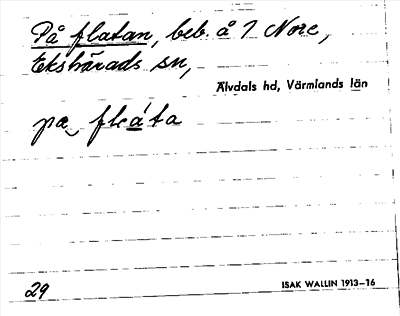 På flatan, beb. å 1 Nore,
Ekshärads sn,
Älvdals hd, Värmlands län
pa flea̲ta
29
ISAK WALLIN 1913–16